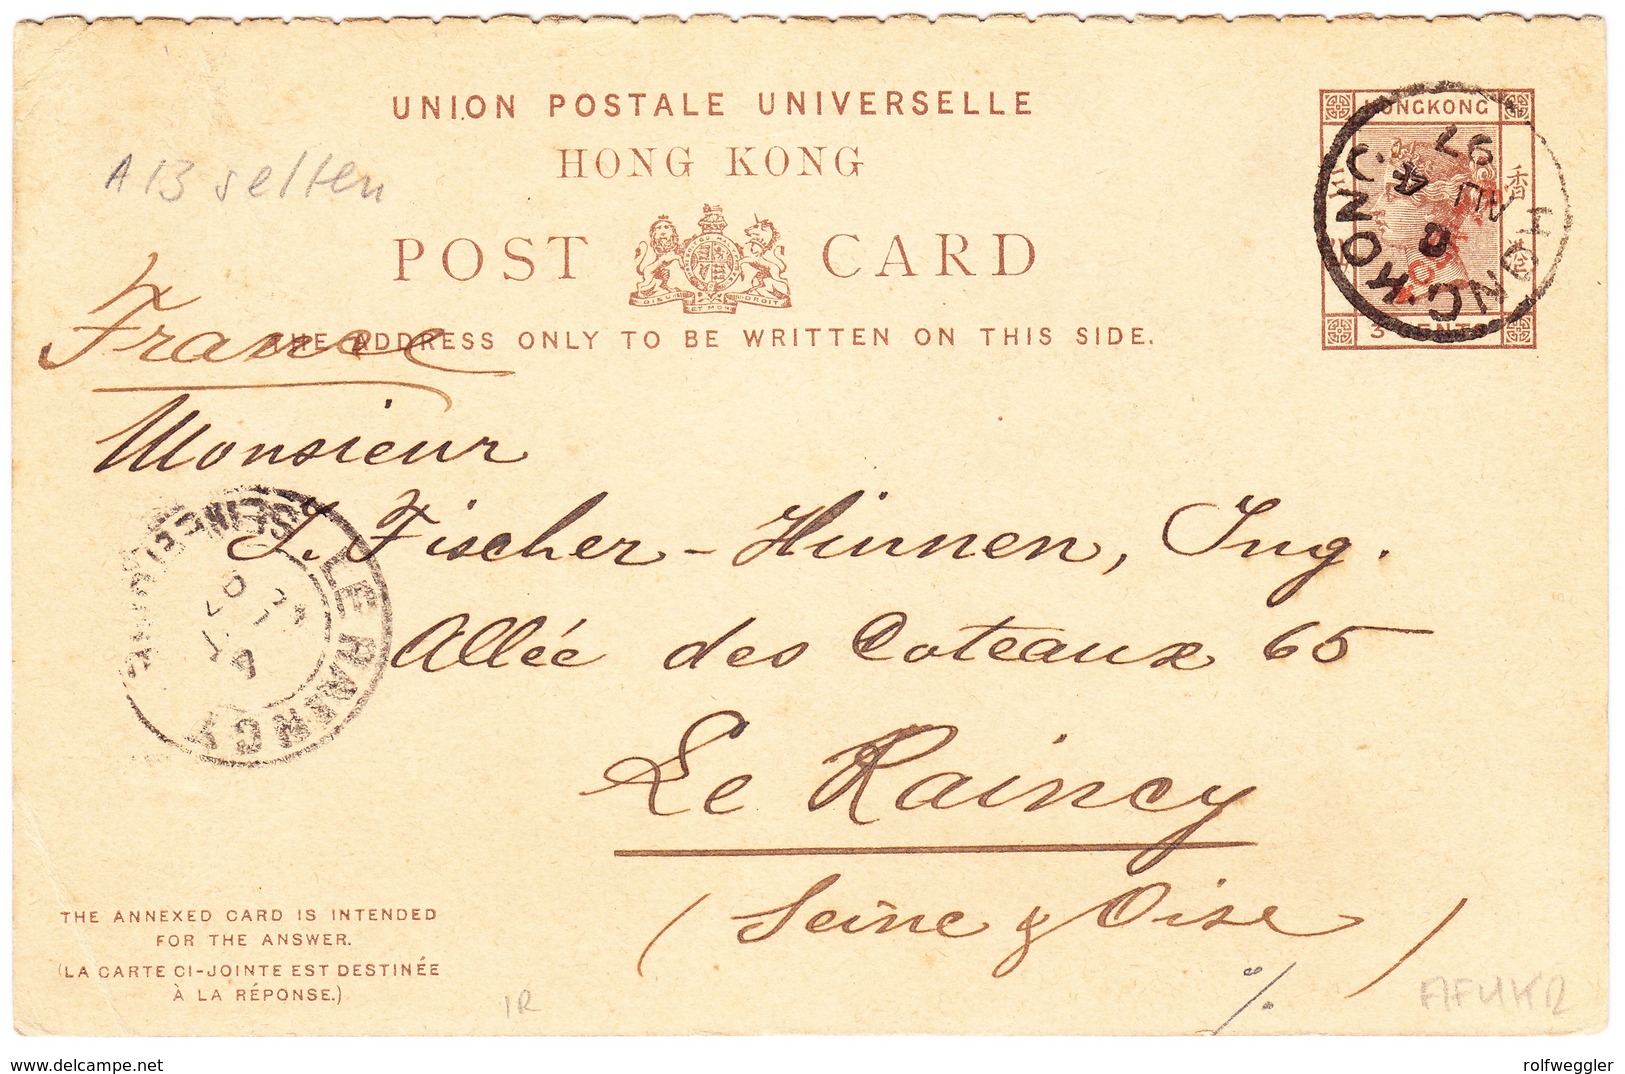 UNION POSTALE UNIVERSELLE
HONG KONG
POST CARD
DIEU ET MON DROIT
THE ADDRESS ONLY TO BE WRITTEN ON THIS SIDE.
A13 selten
HONGKONG
3 CENTS
HONG KONG
8
97
France
Monsieur
J. Fischer-Hinnen, Ing.
Allée des Coteaux 65
Le Raincy
(Seine & Oise)
LE RAINCY
THE ANNEXED CARD IS INTENDED
FOR THE ANSWER.
(LA CARTE CI-JOINTE EST DESTINÉE
À LA RÉPONSE.)
%
delcampe.net
rolfweggler